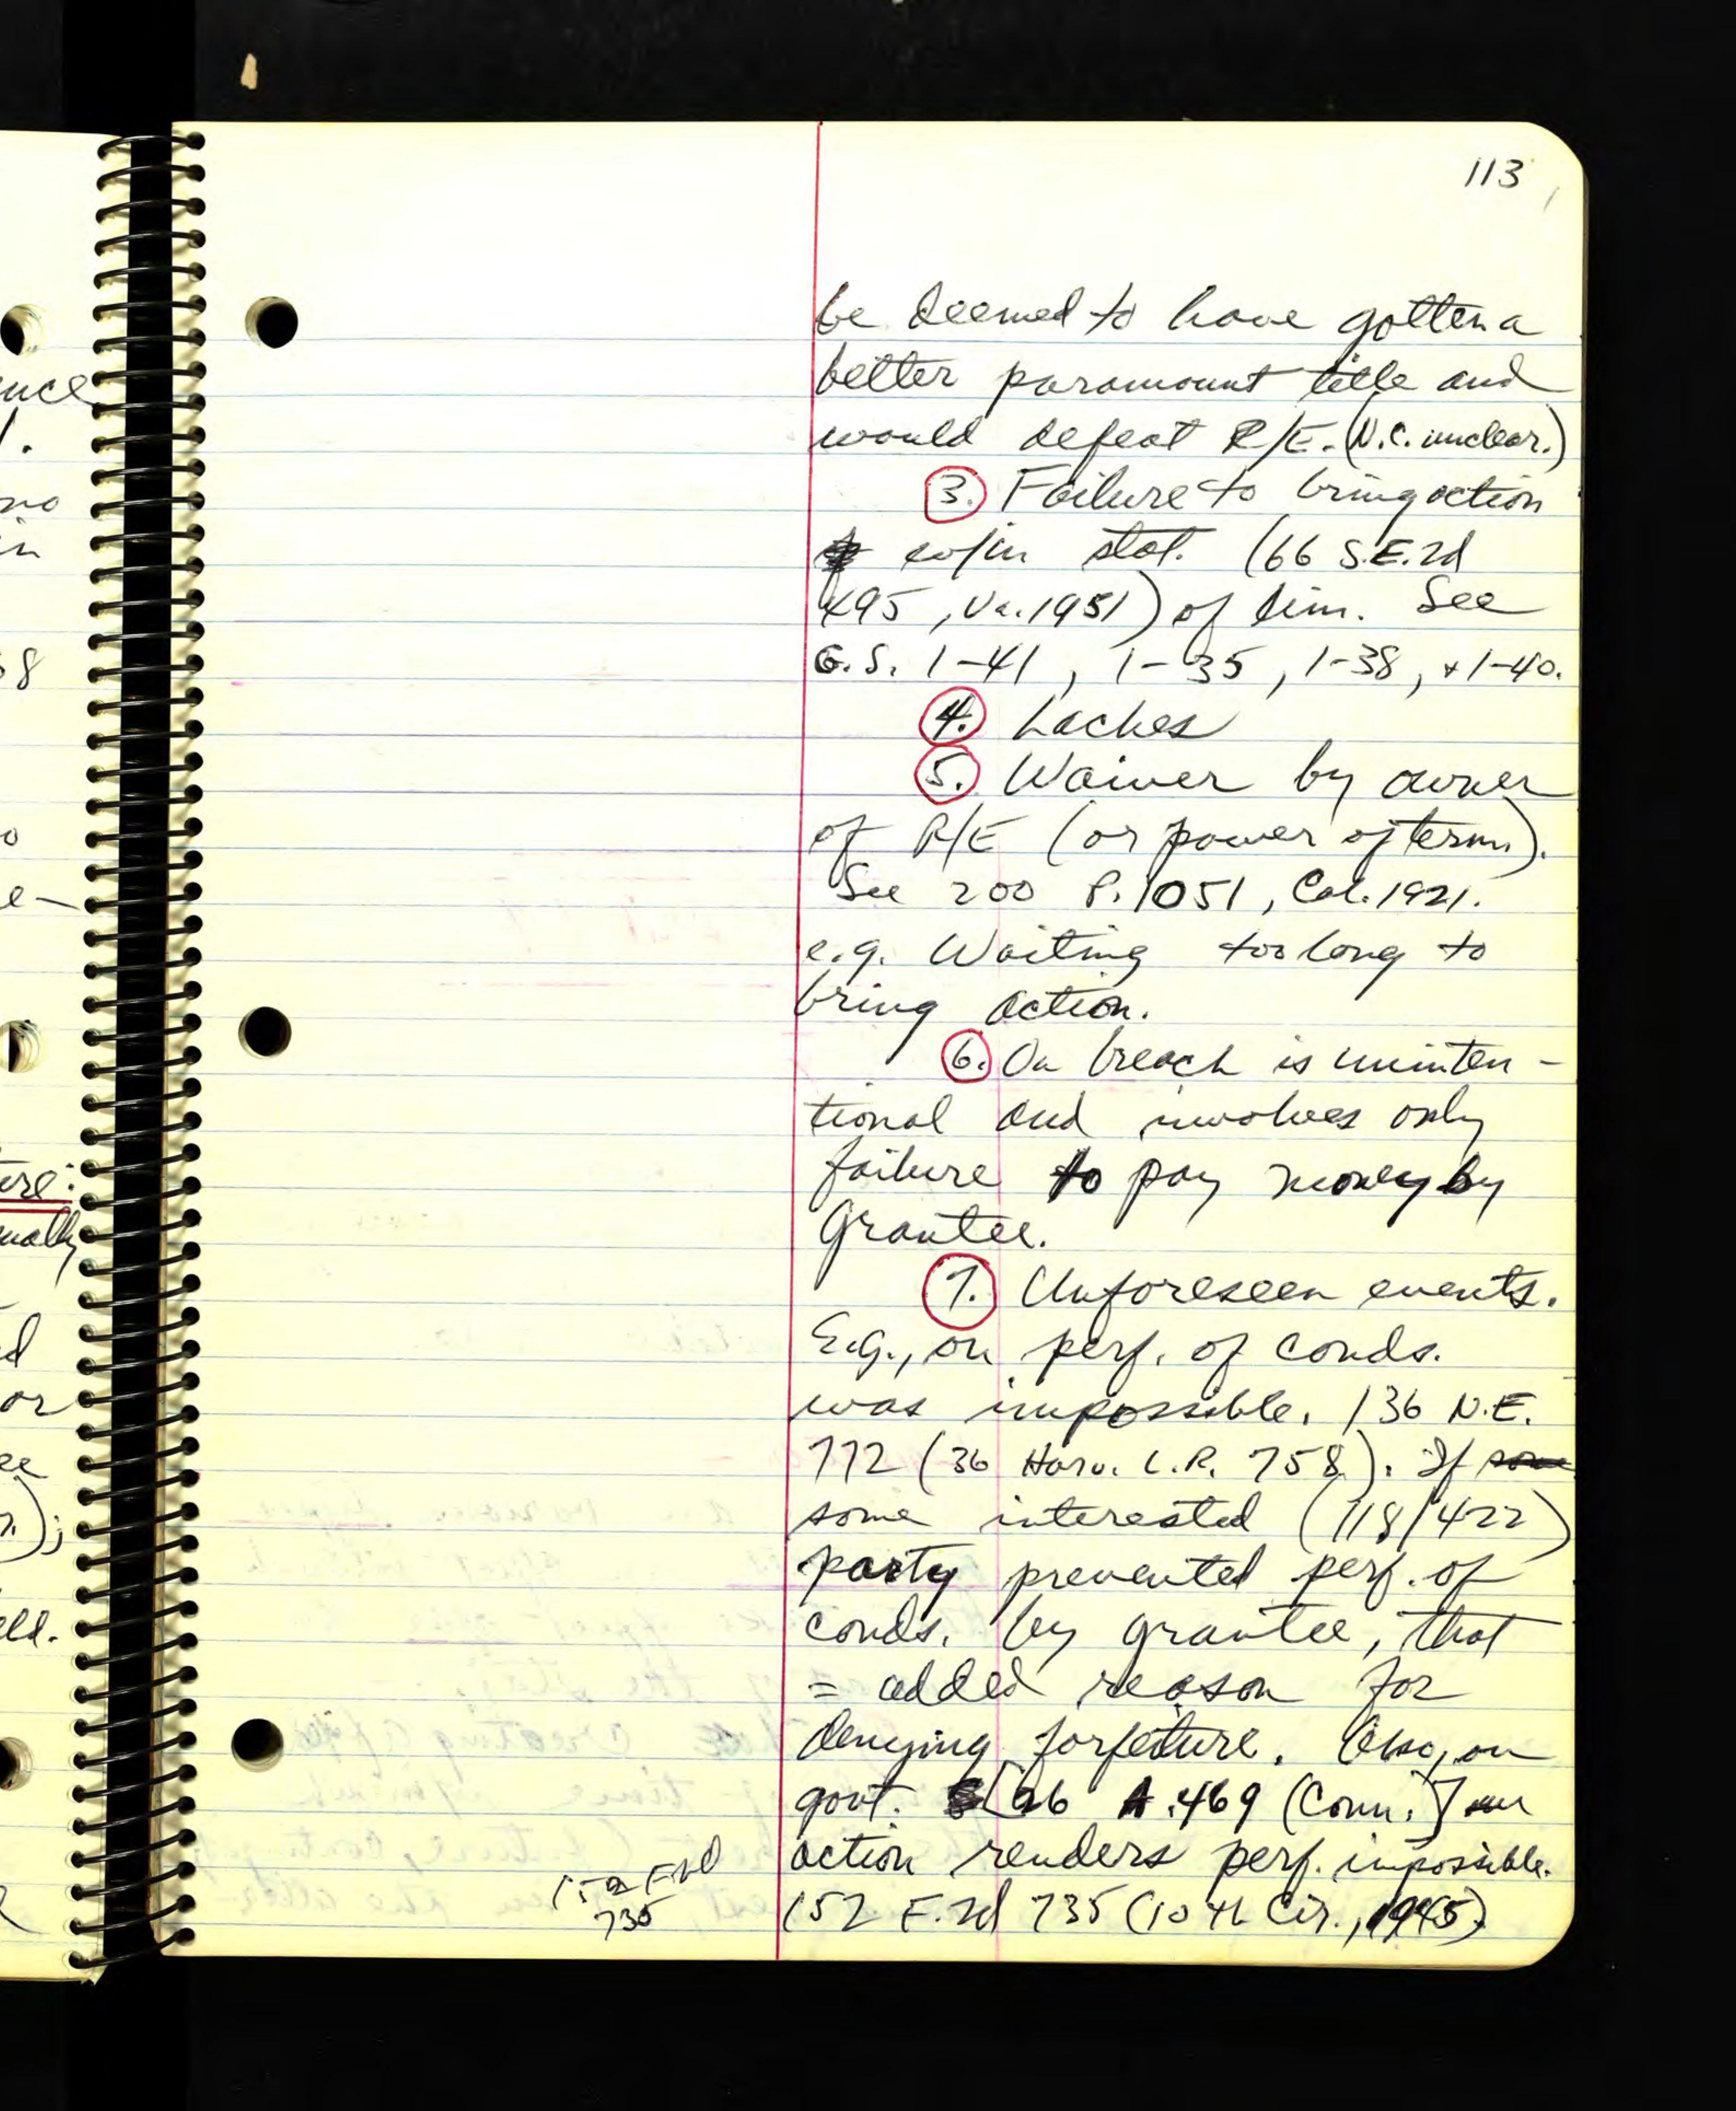 113
be deemed to have gotten a
better paramount title and
would defeat R/E. (N.C. unclear.)
3. Failure to bring action
w/in stat. (66 S.E.2d
495, Va. 1951) of lim. See
G.S. 1-41, 1-35, 1-38, + 1-40.
4. Laches
5. Waiver by owner
of R/E (or power of term.).
See 200 P. 1051, Cal. 1921.
e.g. Waiting too long to
bring action.
6. On breach is uninten-
tional and involves only
failure to pay money by
Grantee.
7. Unforeseen events.
E.g., on perf. of conds.
was impossible. 136 N.E.
772 (36 Harv. L.R. 758). If
some interested (118/422)
party prevented perf. of
conds. by grantee, that
= added reason for
denying forfeiture. Also, on
govt. [26 A. 469 (Conn.]
action renders perf. impossible.
152 F.2d 735 (10th Cir., 1945)
152 F.2d
735
uce
no
in
38
o
e-
ure:
ually
d
or
ee
eld.